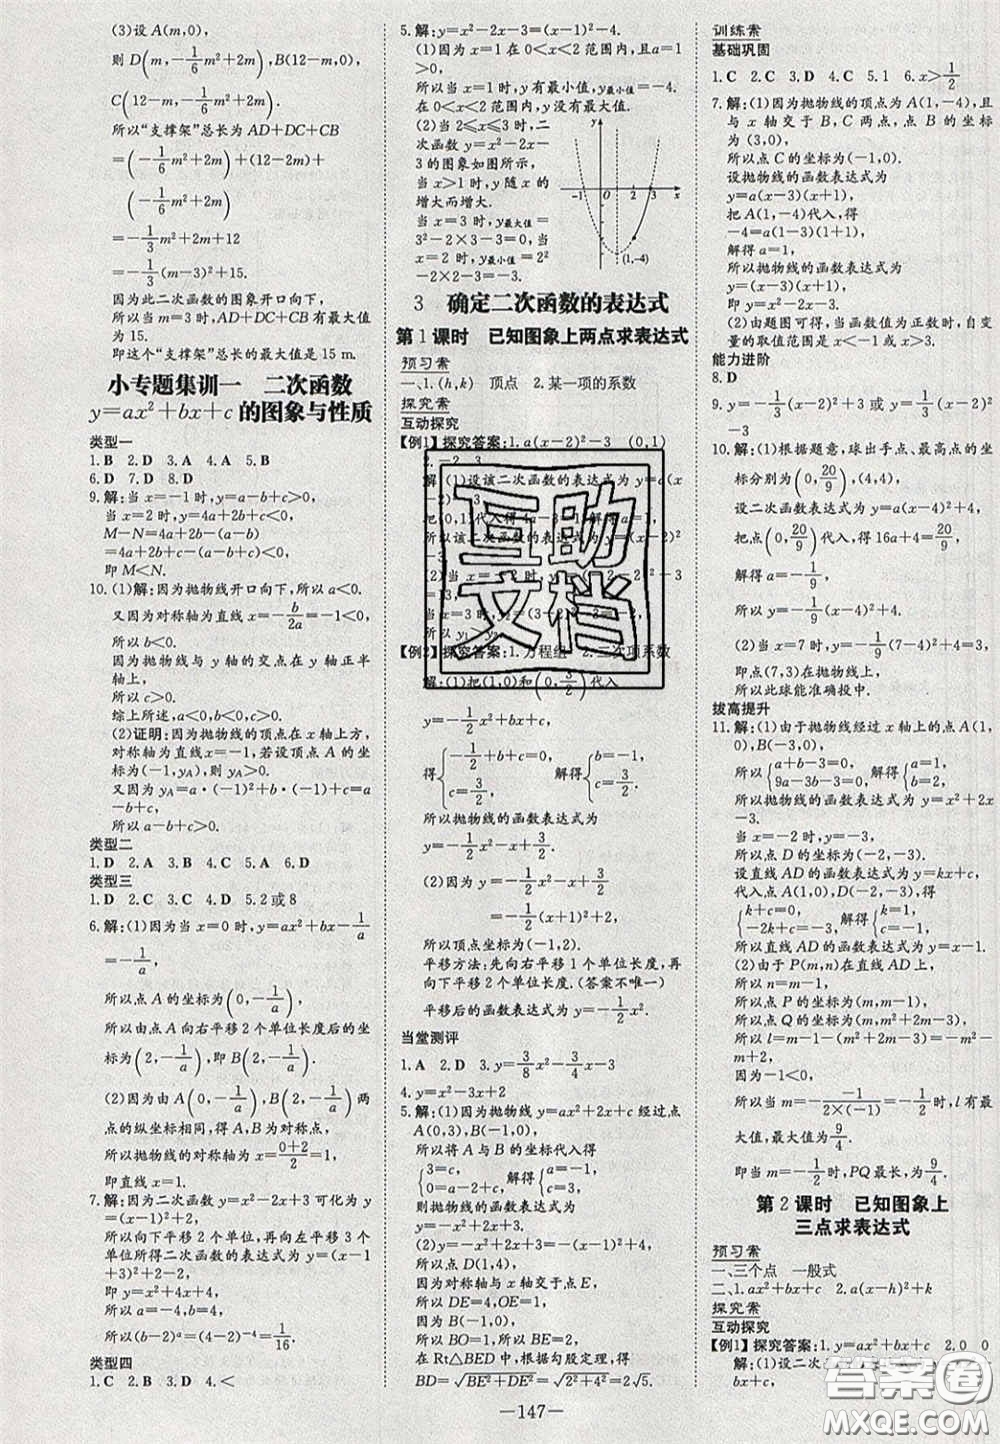 (3)设 A(m,0),
则 D(m,-1/6m²+2m),B(12-m,0),
C(12-m,-1/6m²+2m),
所以“支撑架”总长为 AD+DC+CB
=(-1/6m²+2m)+(12-2m)+
(-1/6m²+2m)
=-1/3m²+2m+12
=-1/3(m-3)²+15.
因为此二次函数的图象开口向下,
所以当 m=3 时,AD+DC+CB 有最大值
为 15.
即这个“支撑架”总长的最大值是 15 m.
小专题集训一 二次函数
y=ax²+bx+c 的图象与性质
类型一
1.B 2.D 3.A 4.A 5.B
6.D 7.D 8.D
9.解:当 x=-1 时,y=a-b+c>0,
当 x=2 时,y=4a+2b+c<0,
M-N=4a+2b-(a-b)
=4a+2b+c-(a-b+c)<0,
即 M<N.
10.(1)解:因为抛物线开口向下,所以 a<0.
又因为对称轴为直线 x=-b/2a=-1<0,
所以 b<0.
因为抛物线与 y 轴的交点在 y 轴正半
轴上,
所以 c>0.
综上所述,a<0,b<0,c>0.
(2)证明:因为抛物线的顶点在 x 轴上方,
对称轴为直线 x=-1,若设顶点 A 的坐
标为(-1,yA),则有 yA>0.
又因为 yA=a·(-1)²+b·(-1)+c=
a-b+c,
所以 a-b+c>0.
类型二
1.D 2.A 3.B 4.C 5.A 6.D
类型三
1.D 2.D 3.C 4.C 5.2 或 8
6.解:(1)因为当 x=0 时,y=ax²+bx-1/a
=-1/a,
所以点 A 的坐标为(0,-1/a),
所以由点 A 向右平移 2 个单位长度后的坐
标为(2,-1/a),即 B(2,-1/a).
(2)因为由 A(0,-1/a),B(2,-1/a)两
点的纵坐标相同,得 A,B 为对称点,
所以抛物线的对称轴为直线 x=(0+2)/2=1,
即直线 x=1.
7.解:因为二次函数 y=x²-2x+3 可化为 y
=(x-1)²+2,
所以向下平移 2 个单位,再向左平移 3 个
单位所得二次函数的表达式为 y=(x-1
+3)²+2-2,
即 y=(x+2)²=x²+4x+4,
所以 a=-1,b=4,
所以(b-2)ᵃ=(4-2)⁻⁴=1/16.
类型四
1.C 2.A 3.D 4.<
5.解:y=x²-2x-3=(x-1)²-4.
(1)因为 x=1 在 0<x<2 范围内,且 a=1
>0,
所以当 x=1 时,y有最小值,y最小值=-4.
在 0<x<2 范围内,y没有最大值.
(2)当 2≤x≤3 时,二
次函数 y=x²-2x-
3 的图象如图所示,
当 x>1 时,y 随 x 的
增大而增大.
当 x=3 时,y最大值=
3²-2×3-3=0;
当 x=2 时,y最小值=2²
-2×2-3=-3.
y
-1 0 1 2 3 x
(1,-4)
3 确定二次函数的表达式
第 1 课时 已知图象上两点求表达式
预习案
一、1.(h,k) 顶点 2.某一项的系数
探究案
互动探究
【例1】探究答案:1.a(x-2)²-3 (0,1)
2.-2 3
解:(1)设该二次函数的表达式为 y=a(x-
2)²-3.
【例2】探究答案:1.方程组
解:(1)把(1,0)和(0,3/2)代入
y=-1/2x²+bx+c,
得{-1/2+b+c=0, c=3/2, 解得{b=-1, c=3/2,
所以抛物线的函数表达式为
y=-1/2x²-x+3/2.
(2)因为 y=-1/2x²-x+3/2=-1/2(x+
1)²+2,
所以顶点坐标为(-1,2).
平移方法:先向右平移 1 个单位长度,再
向下平移 2 个单位长度.(答案不唯一)
平移后的函数表达式为 y=-1/2x².
当堂测评
1.A 2.D 3.y=3/8x²-3/4x-3
4.y=x²-3x+2
5.解:(1)因为抛物线 y=ax²+2x+c 经过点
A(0,3),B(-1,0),
所以将 A 与 B 的坐标代入得
{3=c, a-2+c=0, 解得{a=-1, c=3.
则抛物线的函数表达式为
y=-x²+2x+3.
(2)由 y=-x²+2x+3=-(x-1)²+4,
所以点 D(1,4).
因为对称轴与 x 轴交于点 E,
所以 DE=4,OE=1.
因为 B(-1,0),
所以 BO=1,所以 BE=2.
在 Rt△BED 中,根据勾股定理,得
BD=√BE²+DE²=√2²+4²=2√5.
训练案
基础巩固
1.C 2.C 3.D 4.C 5.1 6.x>1/2
7.解:(1)因为抛物线的顶点为 A(1,-4),且
与 x 轴交于 B,C 两点,点 B 的坐标
为(3,0),
所以点 C 的坐标为(-1,0).
设抛物线的函数表达式为
y=a(x-3)(x+1),
把 A(1,-4)代入,得
-4=a(1-3)(1+1),
解得 a=1,
所以抛物线的函数表达式为
y=(x-3)(x+1),
即 y=x²-2x-3.
(2)由题图可得,当函数值大于 0 时,自变
量的取值范围为 x<-1 或 x>3.
能力进阶
8.D
9.y=-1/3(x-2)²+3 或 y=1/3(x-2)²
-3
10.解:(1)根据题意,球出手点、最高点的坐
标分别为(0,20/9),(4,4),
设二次函数表达式为 y=a(x-4)²+4,
把点(0,20/9)代入,得 16a+4=20/9,
解得 a=-1/9,
所以 y=-1/9(x-4)²+4.
(2)当 x=7 时,y=-1/9(7-4)²+4=3,
即点(7,3)在抛物线上,
所以此球能准确投中.
拔高提升
11.解:(1)由于抛物线经过 x 轴上的点 A(1,
0),B(-3,0),
所以{a+b-3=0, 9a-3b-3=0, 解得{a=1, b=2.
所以抛物线的函数表达式为 y=x²+2x-3.
当 x=-2 时,y=-3,
所以点 D 的坐标为(-2,-3).
设直线 AD 的函数表达式为 y=kx+t,
代入点 A(1,0),D(-2,-3),得
{k+t=0, -2k+t=-3, 解得{k=1, t=-1.
所以直线 AD 的函数表达式为 y=x-1.
(2)由于 P(m,n)在直线 AD 上,
所以 n=m-1,
所以点 P 的坐标为(m,m-1),
所以点 Q 的坐标为(m,m²+2m-3),
所以 l=m-1-(m²+2m-3)=-m²-
m+2.
因为-1<0,
所以当 m=-(-1)/(2×(-1))=-1/2时,l 有最
大值,最大值为9/4,
即当 m=-1/2时,PQ 最长,为9/4.
第 2 课时 已知图象上
三点求表达式
预习案
一、三个点 一般式
二、1.ax²+bx+c 2.a(x-h)²+k
探究案
互动探究
【例1】探究答案:1.y=ax²+bx+c 2.0 0
解:(1)设二次
bx+c,
—147—
互助文档
答案圈
MXQE.COM